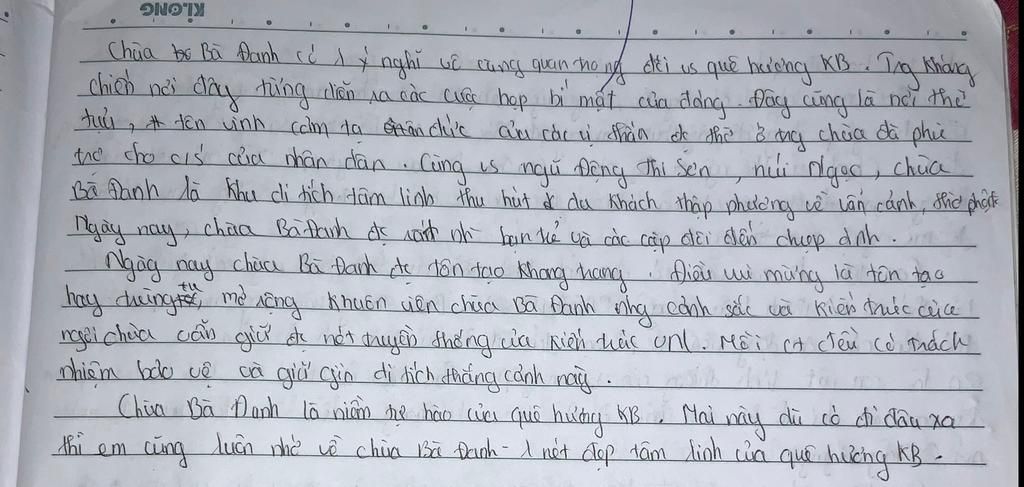 KLONG
Chùa Bà Đanh có 1 ý nghĩ vô cùng quan trọng đối vs quê hương KB. Trg kháng
chiến nơi đây từng diễn ra các cuộc họp bí mật của đảng. Đây cũng là nơi thờ
tự, tôn vinh cảm tạ đức của các vị thần đc thờ ở trg chùa đã phù
trợ cho c/s của nhân dân. Cùng vs ngũ Động Thi Sơn, núi Ngọc, chùa
Bà Đanh là khu di tích tâm linh thu hút du khách thập phương về vãn cảnh,
Ngày nay, chùa Bà Đanh đc bạn trẻ và các cặp đôi đến chụp ảnh.
Ngày nay chùa Bà Đanh đc tôn tạo khang trang. Điều vui mừng là tôn tạo
hay trùng tu, mở rộng khuôn viên chùa Bà Đanh nhg cảnh sắc và kiến trúc của
ngôi chùa vẫn giữ đc nét truyền thống của kiến trúc VN. Mỗi ct đều có trách
nhiệm bảo vệ và giữ gìn di tích thắng cảnh này.
Chùa Bà Đanh là niềm tự hào của quê hương KB. Mai này dù có đi đâu xa
thì em cũng luôn nhớ về chùa Bà Đanh - 1 nét đẹp tâm linh của quê hương KB.